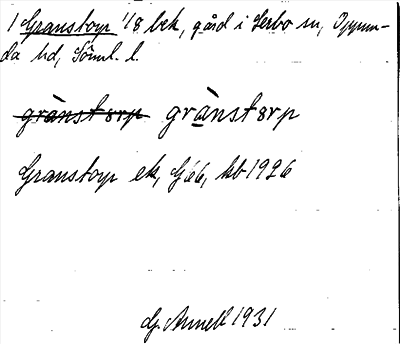 1 Granstorp 1/8 bek, gård i Lerbo sn, Oppun-
da hd, Söml. l.
grànstorp grànstorp
Granstorp ek, G66, kb 1926
G. Annell 1931